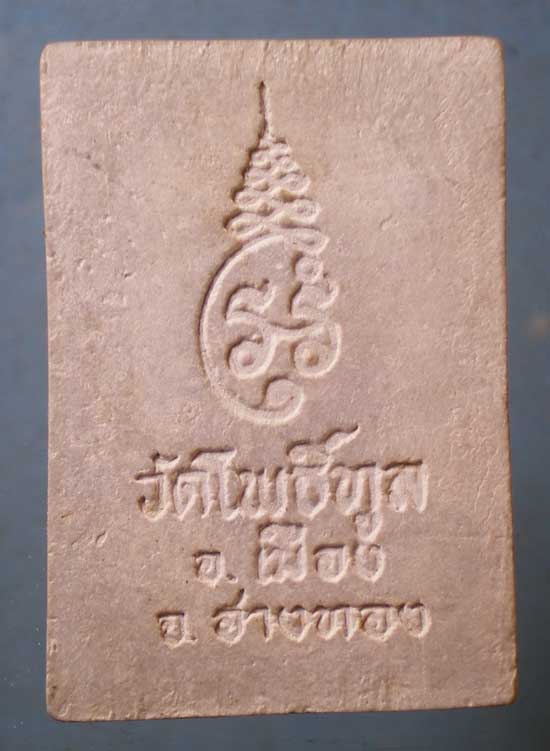 วัดโพธิ์ทูล
อ. เมือง
จ. อ่างทอง